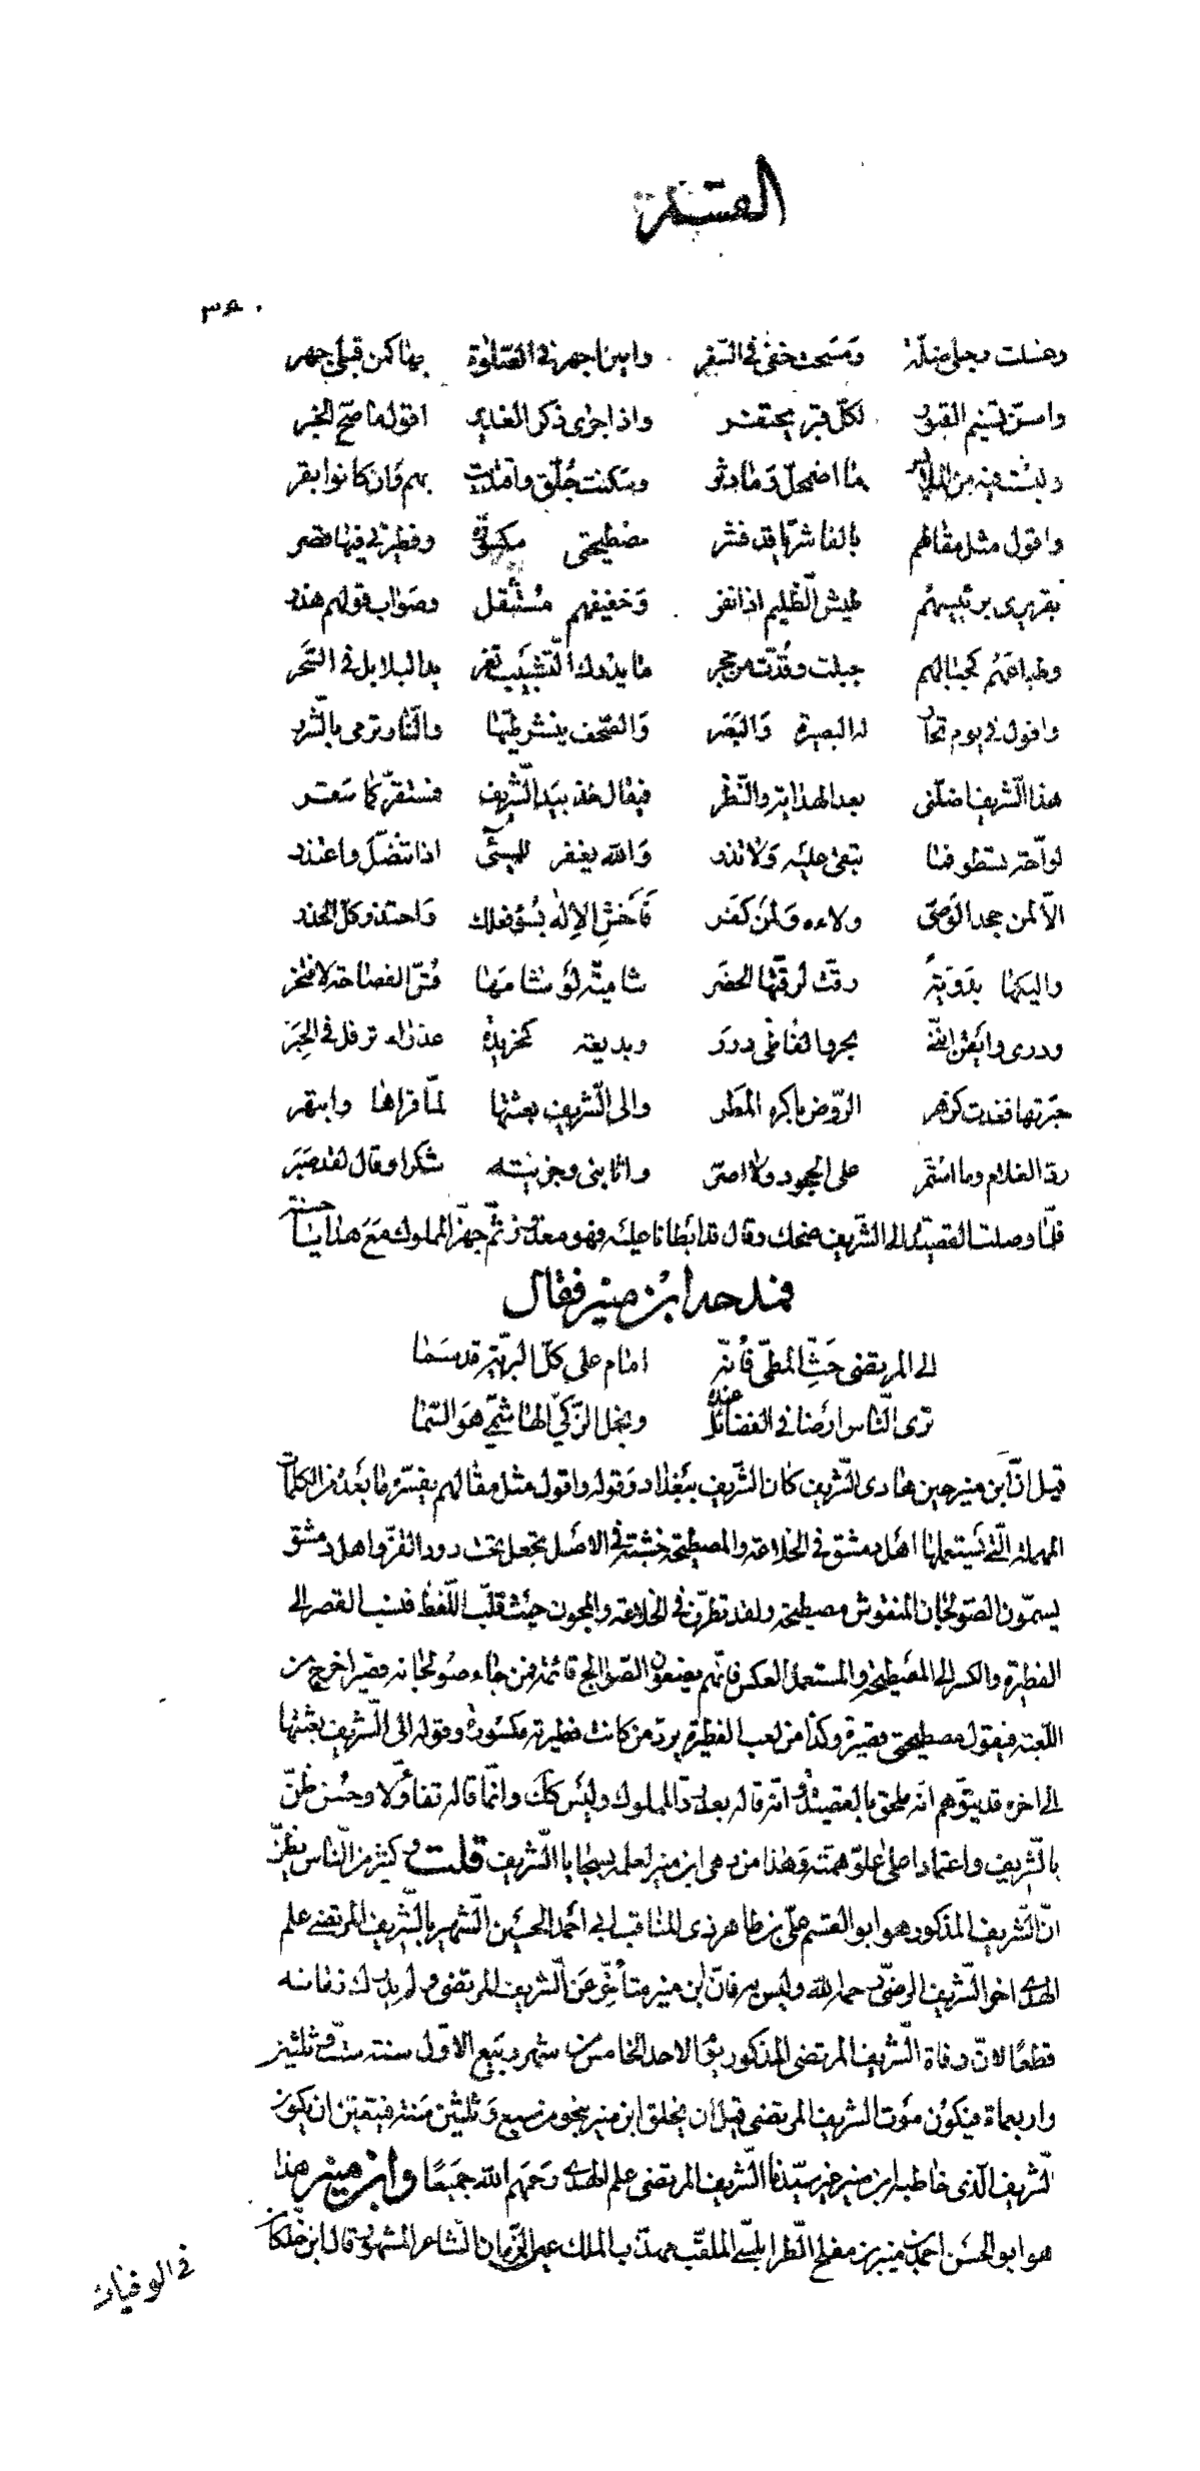 القسم
٣٤٠
وغسلت رجلي ضلّة ومسحت خفي في السّفر وامين اجهر في الصّلوٰة بها كمن قبلي جهر
واسنّ تسنيم القبور لكلّ قبر يحتفر واذا جرى ذكر الغدير اقول ما صحّ الخبر
ولبست فيه من الملابس ما اضمحلّ وما دثر وسكنت جلّق واقتديت بهم وان كانوا بقر
واقول مثل مقالهم بالفاشريّا قد فشر مصطيحتي مكسورة وفطيرتي فيها قصر
بقر يرى برئيسهم طيش الظّليم اذا نفر وخفيفهم مستثقل وصواب قولهم هذر
وطباعهم كجبالهم جبلت وقدّت من حجر ما يدرك التّشبيب تغريد البلابل في السّحر
واقول في يوم تحار له البصيرة والبصر والصّحف ينشر طيّها والنّار ترمي بالشّرر
هذا الشّريف اضلّني بعد الهداية والنّظر فيقال خذ بيد الشّريف فمستقرّكما سقر
لوّاحة تسطو فما تبقي عليه ولا تذر والله يغفر للمسيئ اذا تنصّل واعتذر
الّا لمن جحد الوصيّ ولاءه ولمن كفر فاخش الاله بسوء فعلك واحتذر كلّ الحذر
واليكها بدويّة رقّت لرقّتها الحضر شاميّة لو شامها قسّ الفصاحة لافتخر
ودرى وايقن انّني بحر والفاظي درر وبديعة كخريدة عذراء ترفل في الحبر
حبّرتها فغدت كزهر الرّوض باكره المطر والى الشّريف بعثتها لمّا قراها وابتهر
ردّ الغلام وما استمرّ على الجحود ولا اصرّ واثابني وجزيته شكرا وقال لقد صبر
فلمّا وصلت القصيدة الى الشّريف ضحك وقال قد ابطانا عليه فهو معذور ثمّ جهّز المملوك مع هدايا حسنة
فمدحه ابن منير فقال
الى المرتضى حثّ المطيّ فانّه امام على كلّ البريّة قد سما
ترى النّاس ارضا في الفضائل عنده ونجل الزّكيّ الهاشميّ هو السّما
قيل انّ ابن منير حين هادى الشّريف كان الشّريف ببغداد وقوله واقول مثل مقالهم يفسّره ما بعده من الكلمات
المهملة الّتي يستعملها اهل دمشق في الخلاعة والمصطيحة خشبة في الاصل تجعل تحت دود القزّ واهل دمشق
يسمّون الصّولجان المنقوش مصطيحة ولقد تظرّف في الخلاعة والمجون حيث قلب اللّفظ فنسب القصر الى
الفطيرة والكسر الى المصطيحة والمستعمل العكس فانّهم يضعون الصّوالج قائمة فمن جاء صولجانه قصيرا خرج من
اللّعبة فيقول مصطيحتي قصيرة وكذا من لعب الفطيرة يردّ من كانت فطيرته مكسورة وقوله الى الشّريف بعثتها
الى اخره قد يتوهم انّه ملحق بالقصيدة وانّه قاله بعد ردّ المملوك وليس كذلك وانّما قاله تفاؤلا وحسن ظنّ
بالشّريف واعتمادا على علوّ همّته وهذا من دهي ابن منير لعلمه بسجايا الشّريف قلت وكثير من النّاس يظنّ
انّ الشّريف المذكور هو ابو القسم عليّ بن طاهر ذى المناقب ابي احمد الحسين الشّهير بالشّريف المرتضى علم
الهدى اخو الشّريف الرضيّ رحمه الله وليس به فانّ ابن منير متأخّر عن الشّريف المرتضى ولم يدرك زمانه
قطعًا لانّ وفاة الشّريف المرتضى المذكور يوم الاحد الخامس من شهر ربيع الاوّل سنة ستّ وثلثين
واربعمأة فيكون موت الشريف المرتضى قبل ان يخلق ابن منير بنحو من سبع وثلثين سنة فيتقيّن ان يكون
الشّريف الّذي خاطبه ابن منير غير سيّدنا الشّريف المرتضى علم الهدى رحمهم الله جميعًا وابن منير هذا
هو ابو الحسن احمد بن منير بن مفلح الطّرابلسي الملقّب مهذّب الملك عين الزّمان الشّاعر المشهور قال ابن خلّكان
في الوفيات